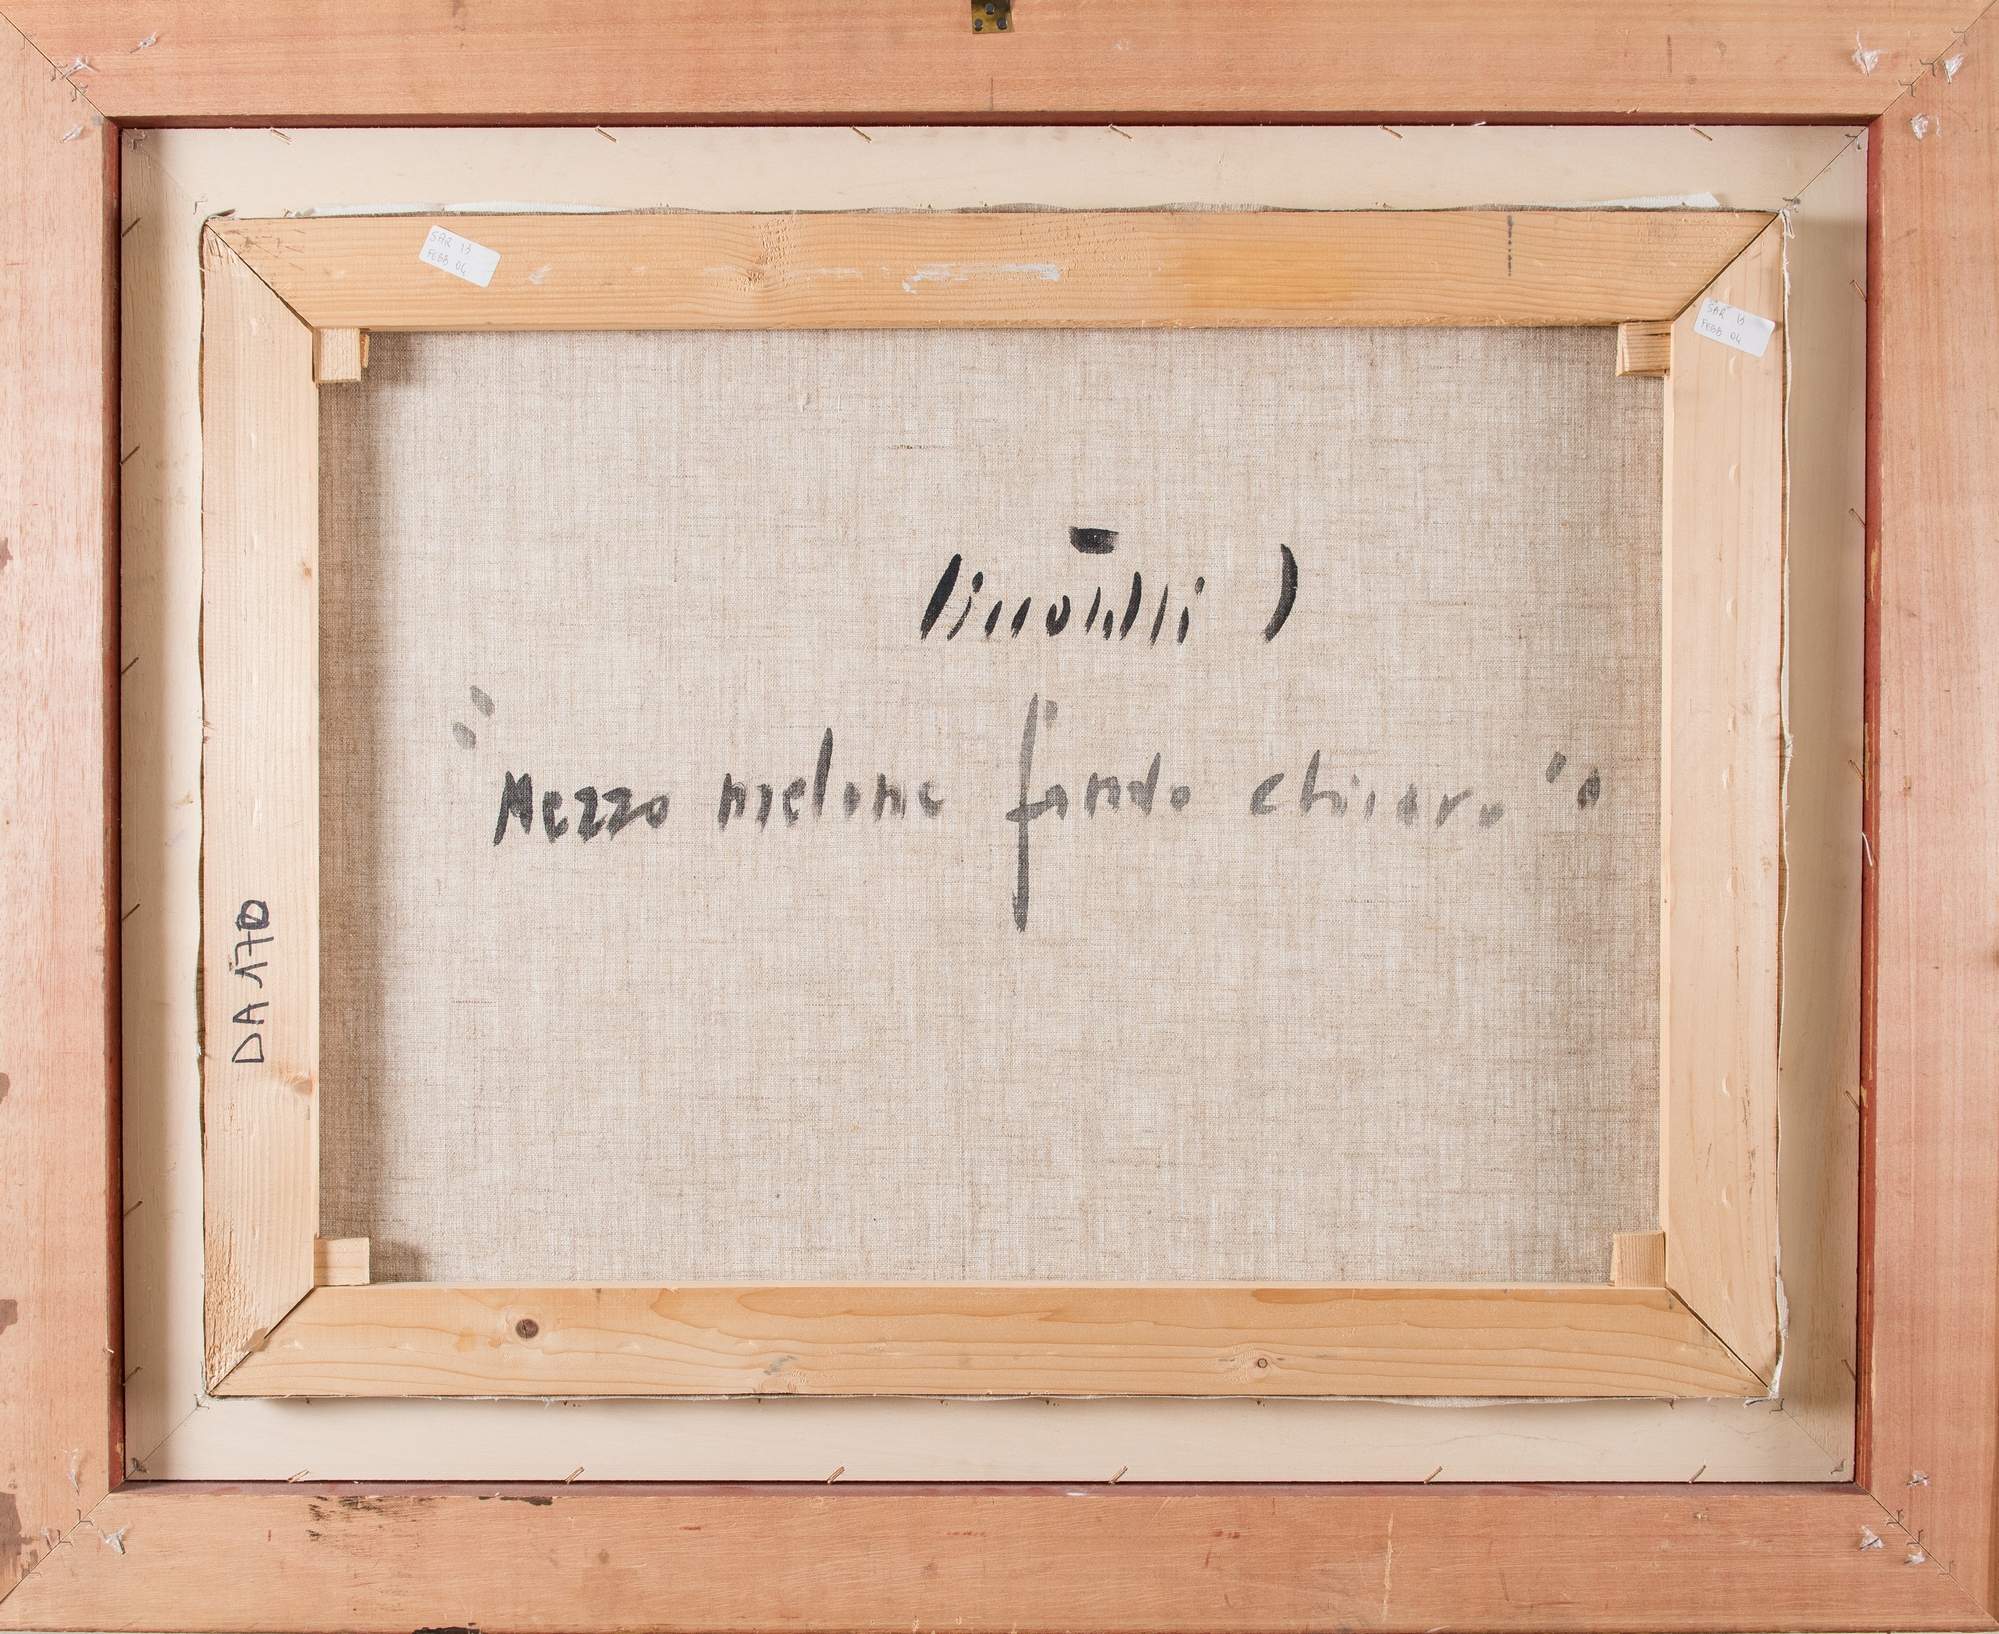 SAR 13
FEBB 04
SAR 13
FEBB 04
"Mezzo melone fondo chiaro"
DA 170